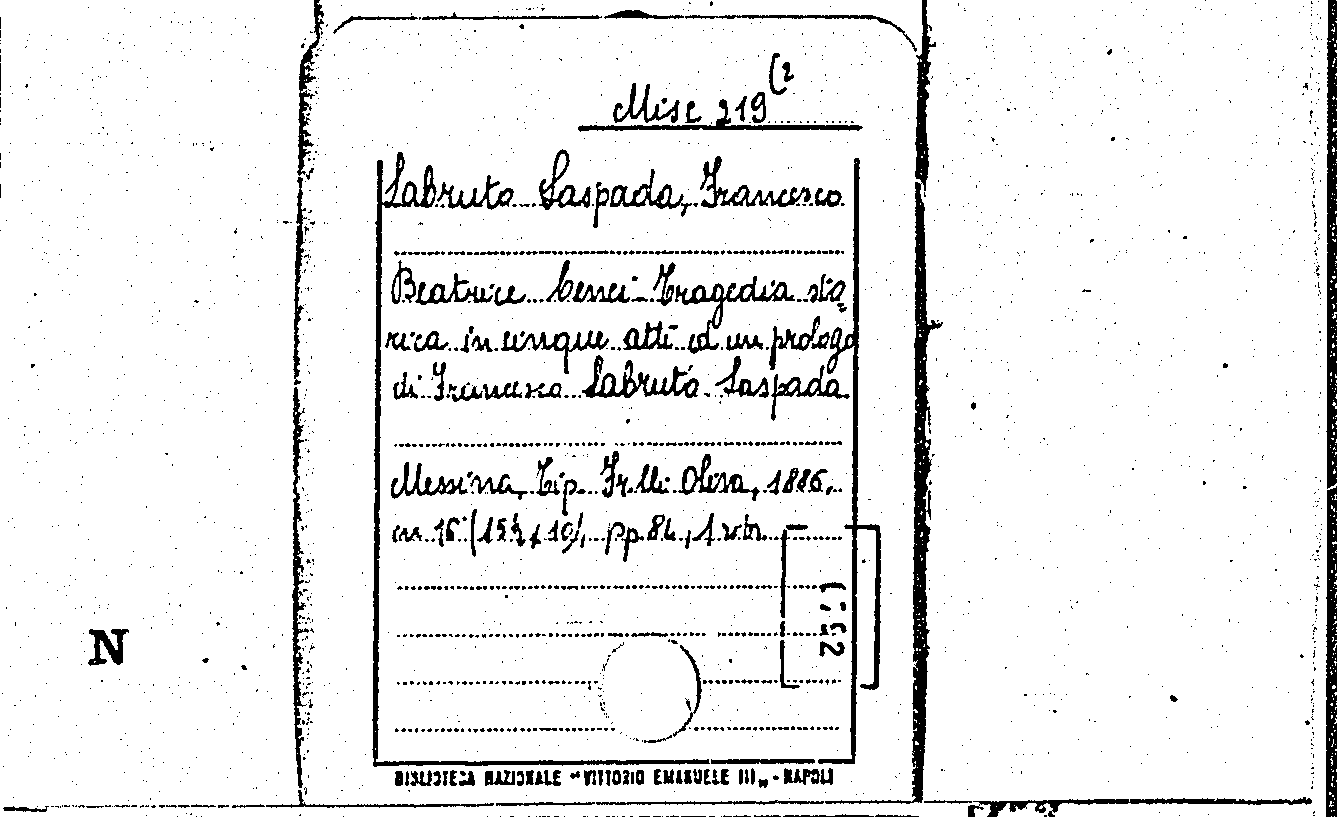 Misc 219 (2
Labruto Laspada, Francesco
Beatrice Cenci - Tragedia sto=
rica in cinque atti ed un prologo
di Francesco Labruto Laspada.
Messina, Tip. F.lli Oliva, 1886.
in 16° pp. 84, 1 vol.
N
BIBLIOTECA NAZIONALE "VITTORIO EMANUELE III„ - NAPOLI